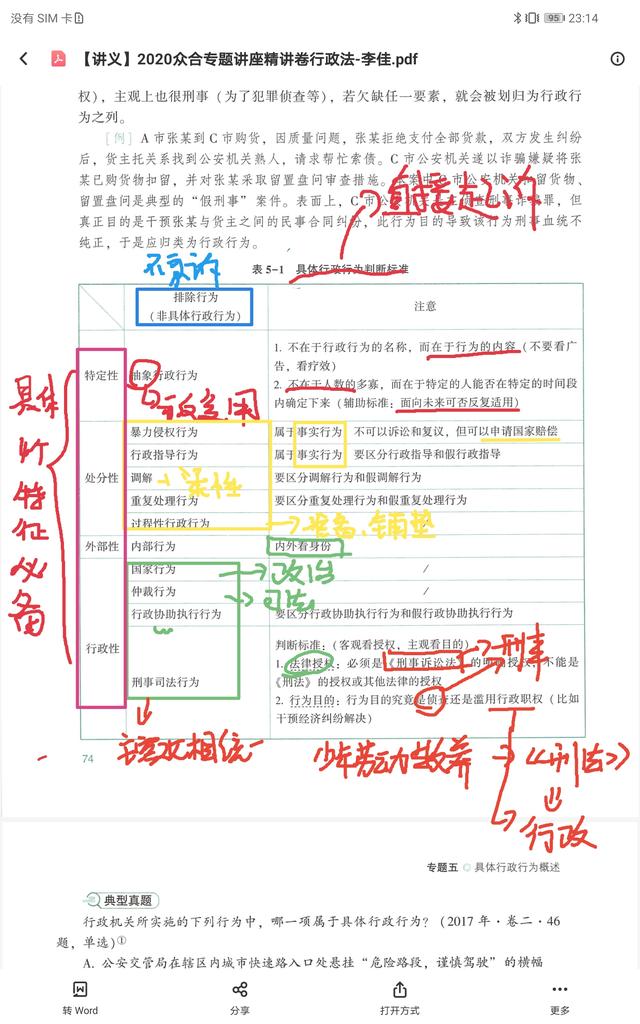 没有 SIM 卡
95 23:14
【讲义】2020众合专题讲座精讲卷行政法-李佳.pdf
权），主观上也很刑事（为了犯罪侦查等），若欠缺任一要素，就会被划归为行政行
为之列。
［例］A 市张某到 C 市购货，因质量问题，张某拒绝支付全部货款，双方发生纠纷
后，货主托关系找到公安机关熟人，请求帮忙索债。C 市公安机关遂以诈骗嫌疑将张
某已购货物扣留，并对张某采取留置盘问审查措施。本案中 C 市公安机关扣留货物、
留置盘问是典型的“假刑事”案件。表面上，C 市公安机关在侦查刑事诈骗罪，但
真正目的是干预张某与货主之间的民事合同纠纷，此行为目的导致该行为刑事血统不
纯正，于是应归类为行政行为。
直接起诉
不可诉
表 5-1 具体行政行为判断标准
排除行为
（非具体行政行为）
注意
特定性
抽象行政行为
1. 不在于行政行为的名称，而在于行为的内容（不要看广
告，看疗效）
2. 不在人数的多寡，而在于特定的人能否在特定的时间段
内确定下来（辅助标准：面向未来可否反复适用）
具体行特征必备
处分性
暴力侵权行为
属于事实行为 不可以诉讼和复议，但可以申请国家赔偿
行政指导行为
属于事实行为 要区分行政指导和假行政指导
调解
柔性
要区分调解行为和假调解行为
重复处理行为
要区分重复处理行为和假重复处理行为
过程性行政行为
准备、铺垫
外部性
内部行为
内外看身份
行政性
国家行为
政治
/
仲裁行为
司法
/
行政协助执行行为
要区分行政协助执行行为和假行政协助执行行为
刑事司法行为
判断标准：（客观看授权，主观看目的）
1. 法律授权：必须是《刑事诉讼法》的明确授权，不能是
《刑法》的授权或其他法律的授权
2. 行为目的：行为目的究竟是侦查还是滥用行政职权（比如
干预经济纠纷解决）
刑事
74
主客观相统一
少年劳动收养
《刑法》
行政
专题五 具体行政行为概述
典型真题
行政机关所实施的下列行为中，哪一项属于具体行政行为？（2017 年·卷二·46
题，单选）①
A. 公安交管局在辖区内城市快速路入口处悬挂“危险路段，谨慎驾驶”的横幅
转 Word
分享
打开方式
更多